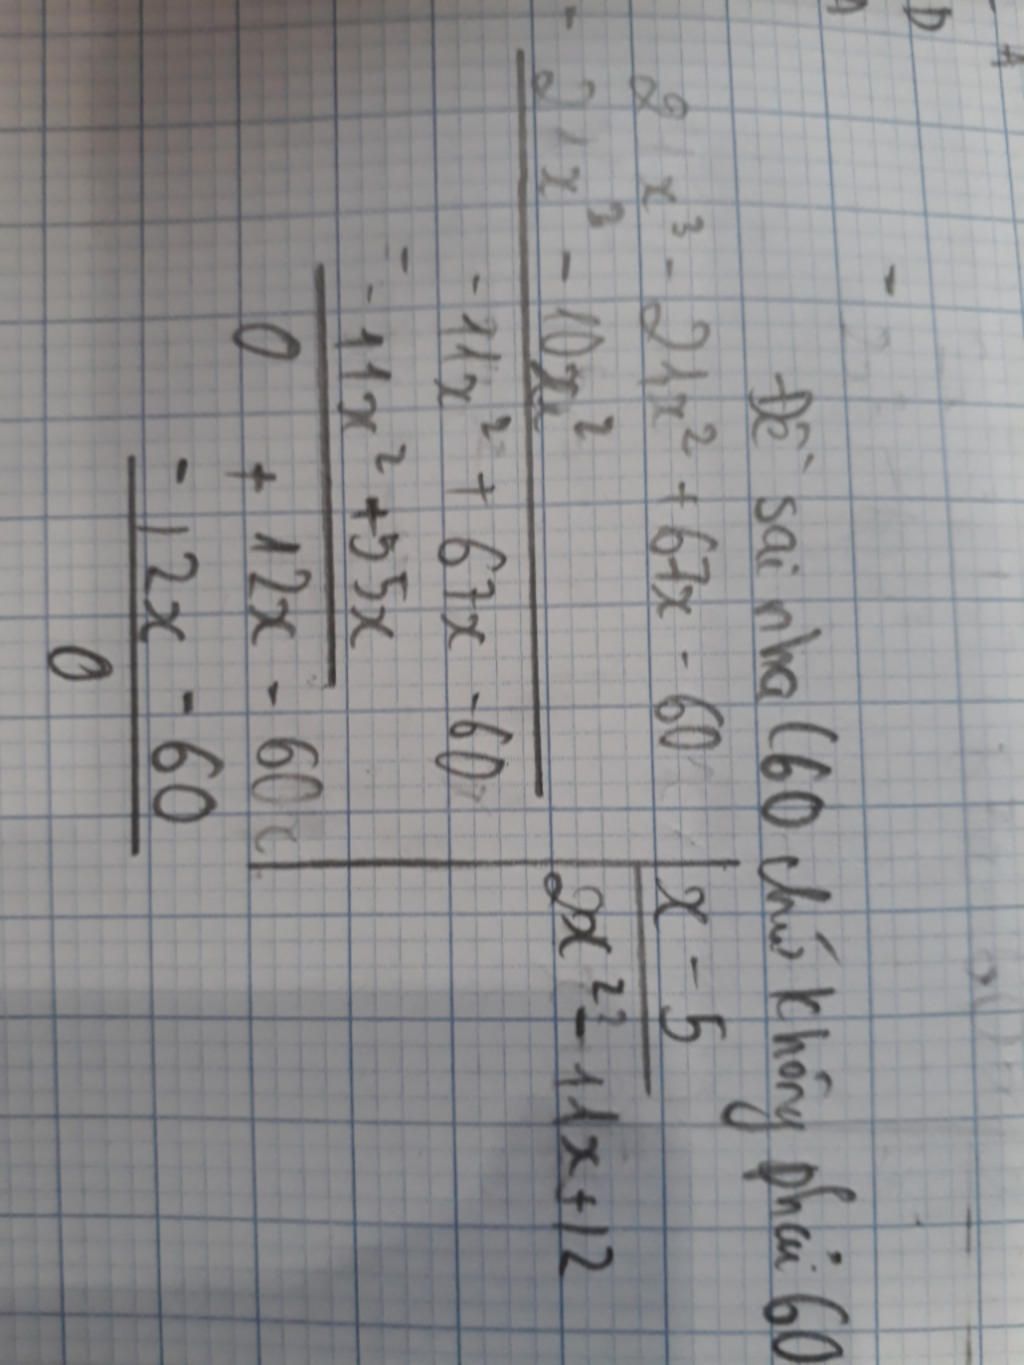 Đề sai nha (60 chứ không phải 60
2x³ - 21x² + 67x - 60 | x - 5
2x³ - 10x² | 2x² - 11x + 12
- 11x² + 67x - 60
- 11x² + 55x
0 + 12x - 60
- 12x - 60
0